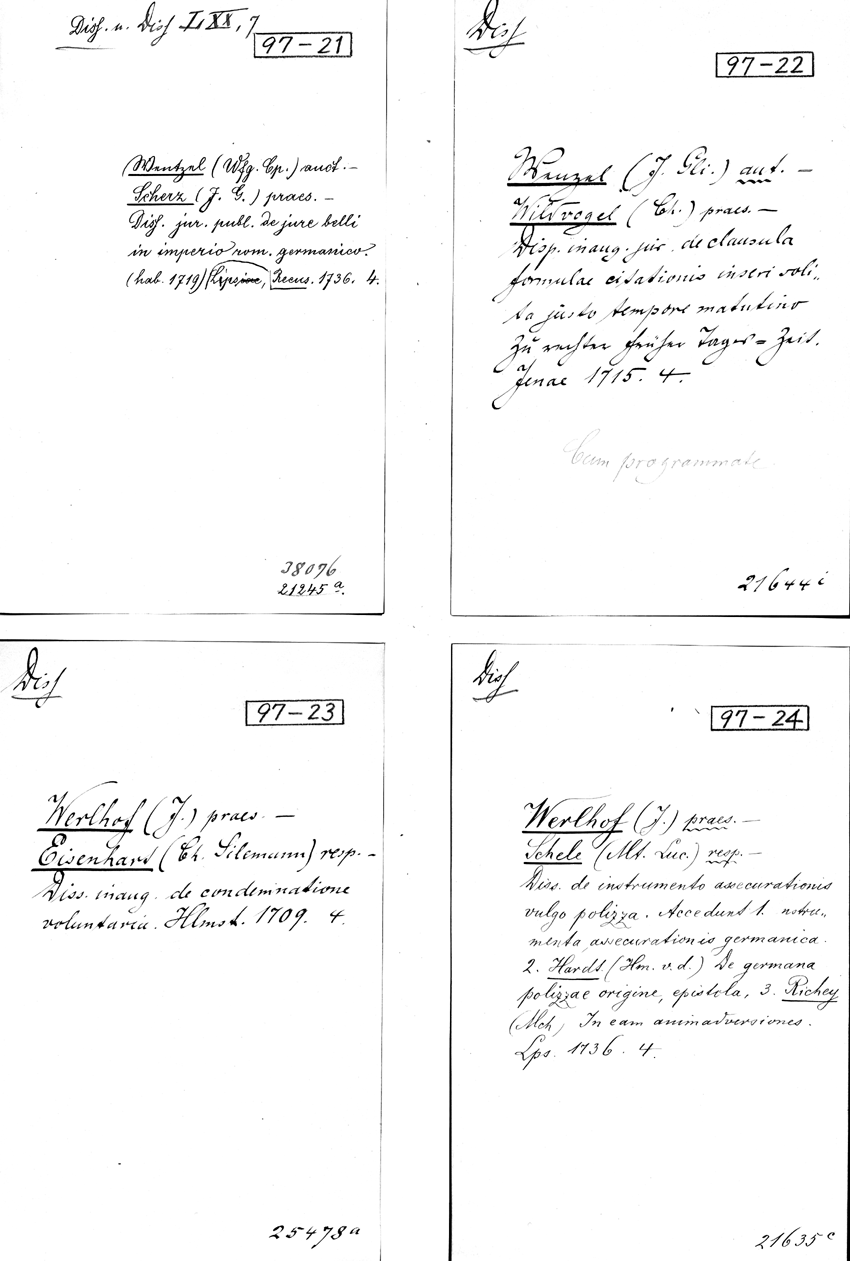 Diss. u. Diss LXX, 7
97-21
Wentzel (Wfg. Cp.) auct. –
Scherz (J. G.) praes. –
Diss. jur. publ. de jure belli
in imperio rom. germanico.
(hab. 1719) Lipsiae, Recus. 1736. 4.
38076
21245 a.
Diss
97-22
Wenzel (J. Gli.) aut. –
Wildvogel (Ch.) praes. –
Disp. inaug. jur. de clausula
formulae citationis inseri soli„
ta justo tempore matutino
Zu rechter früher Tages = Zeit.
Jenae 1715. 4.
Cum programmate
21644 i
Diss
97-23
Werlhof (J.) praes. –
Eisenhart (Ch. Silemann) resp. –
Diss. inaug. de condemnatione
voluntaria. Hlmst. 1709. 4.
25478 a
Diss
97-24
Werlhof (J.) praes. –
Schele (Mt. Luc.) resp. –
Diss. de instrumento assecurationis
vulgo polizza. Accedunt 1. nstru„
menta assecurationis germanica.
2. Hardt (Hm. v. d.) De germana
polizzae origine, epistola, 3. Richey
(Mch) In eam animadversiones.
Lps. 1736. 4.
21635 c